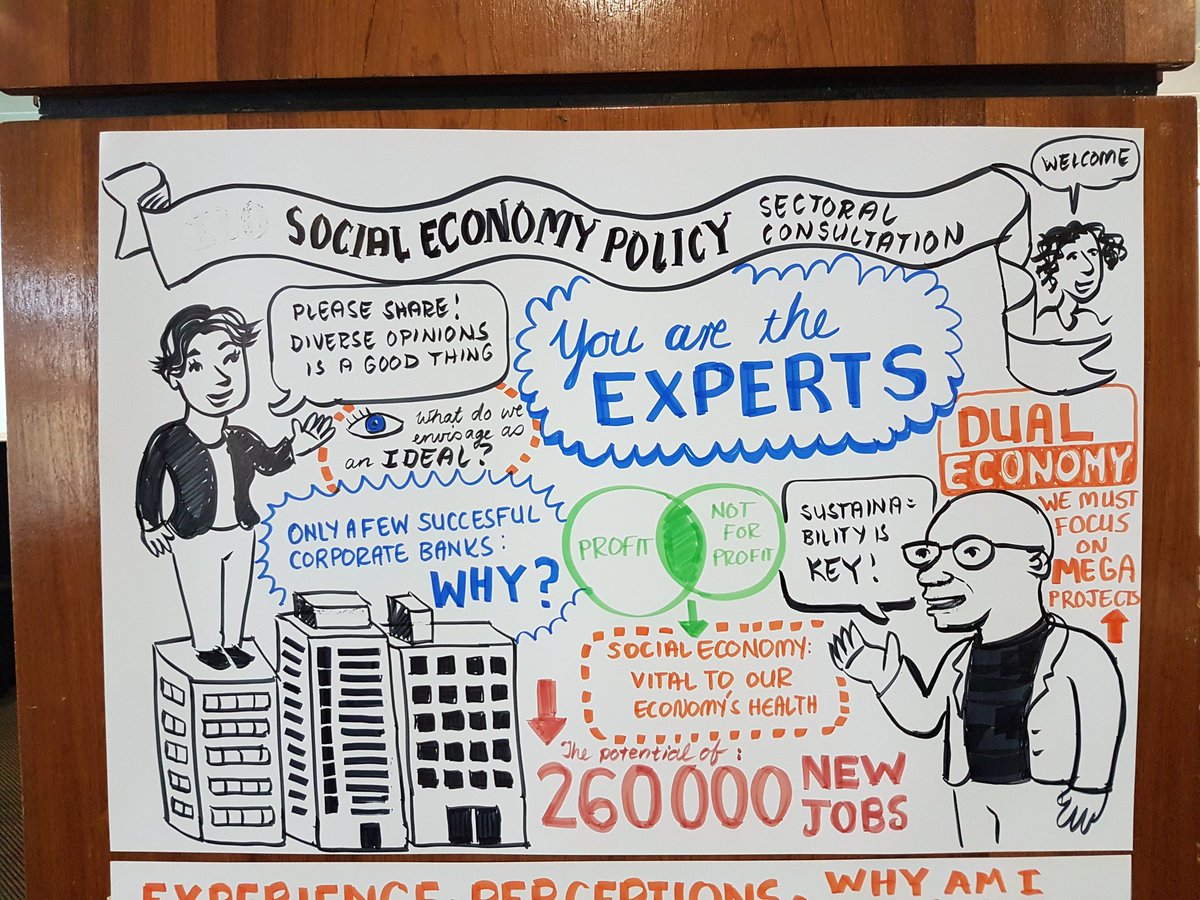 WELCOME
SOCIAL ECONOMY POLICY
SECTORAL
CONSULTATION
PLEASE SHARE!
DIVERSE OPINIONS
IS A GOOD THING
You are the
EXPERTS
What do we
envisage as
an IDEAL?
DUAL
ECONOMY
WE MUST
FOCUS
ON
MEGA
PROJECTS
ONLY A FEW SUCCESFUL
CORPORATE BANKS:
WHY?
PROFIT
NOT
FOR
PROFIT
SUSTAINA=
BILITY IS
KEY!
SOCIAL ECONOMY:
VITAL TO OUR
ECONOMY'S HEALTH
The potential of:
260000
NEW
JOBS
EXPERIENCE. PERCEPTIONS.
WHY AM I